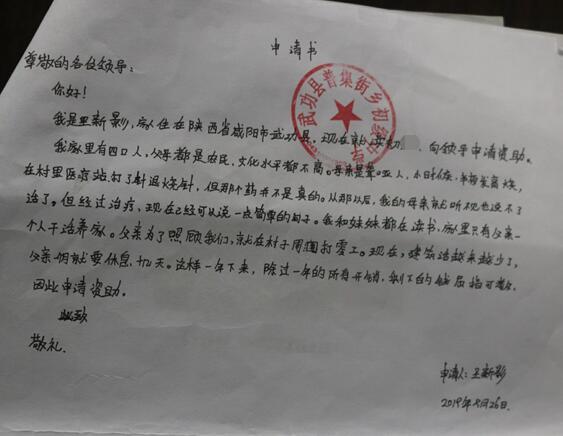 申请书
尊敬的各位领导：
你好！
我是王新影，家住在陕西省咸阳市武功县。现在就读初 、向领导申请资助。
我家里有四口人，父母都是农民，文化水平都不高。母亲是聋哑人，小时候发高烧，
在村里医疗站打了针退烧针，但那个药并不是真的。从那以后，我的母亲就听不见也说不了
话了。但经过治疗，现在已经可以说一点简单的句子。我和妹妹都在读书，家里只有父亲一
个人干活养家。父亲为了照顾我们，就在村子周围打零工。现在，建筑活越来越少了，
父亲一月就要休息十几天。这样一年下来，除过一年的所有开销，剩下的钱屈指可数。
因此申请资助。
此致
敬礼。
申请人：王新影
2019年 月26日.
武功县普集街乡初级中学